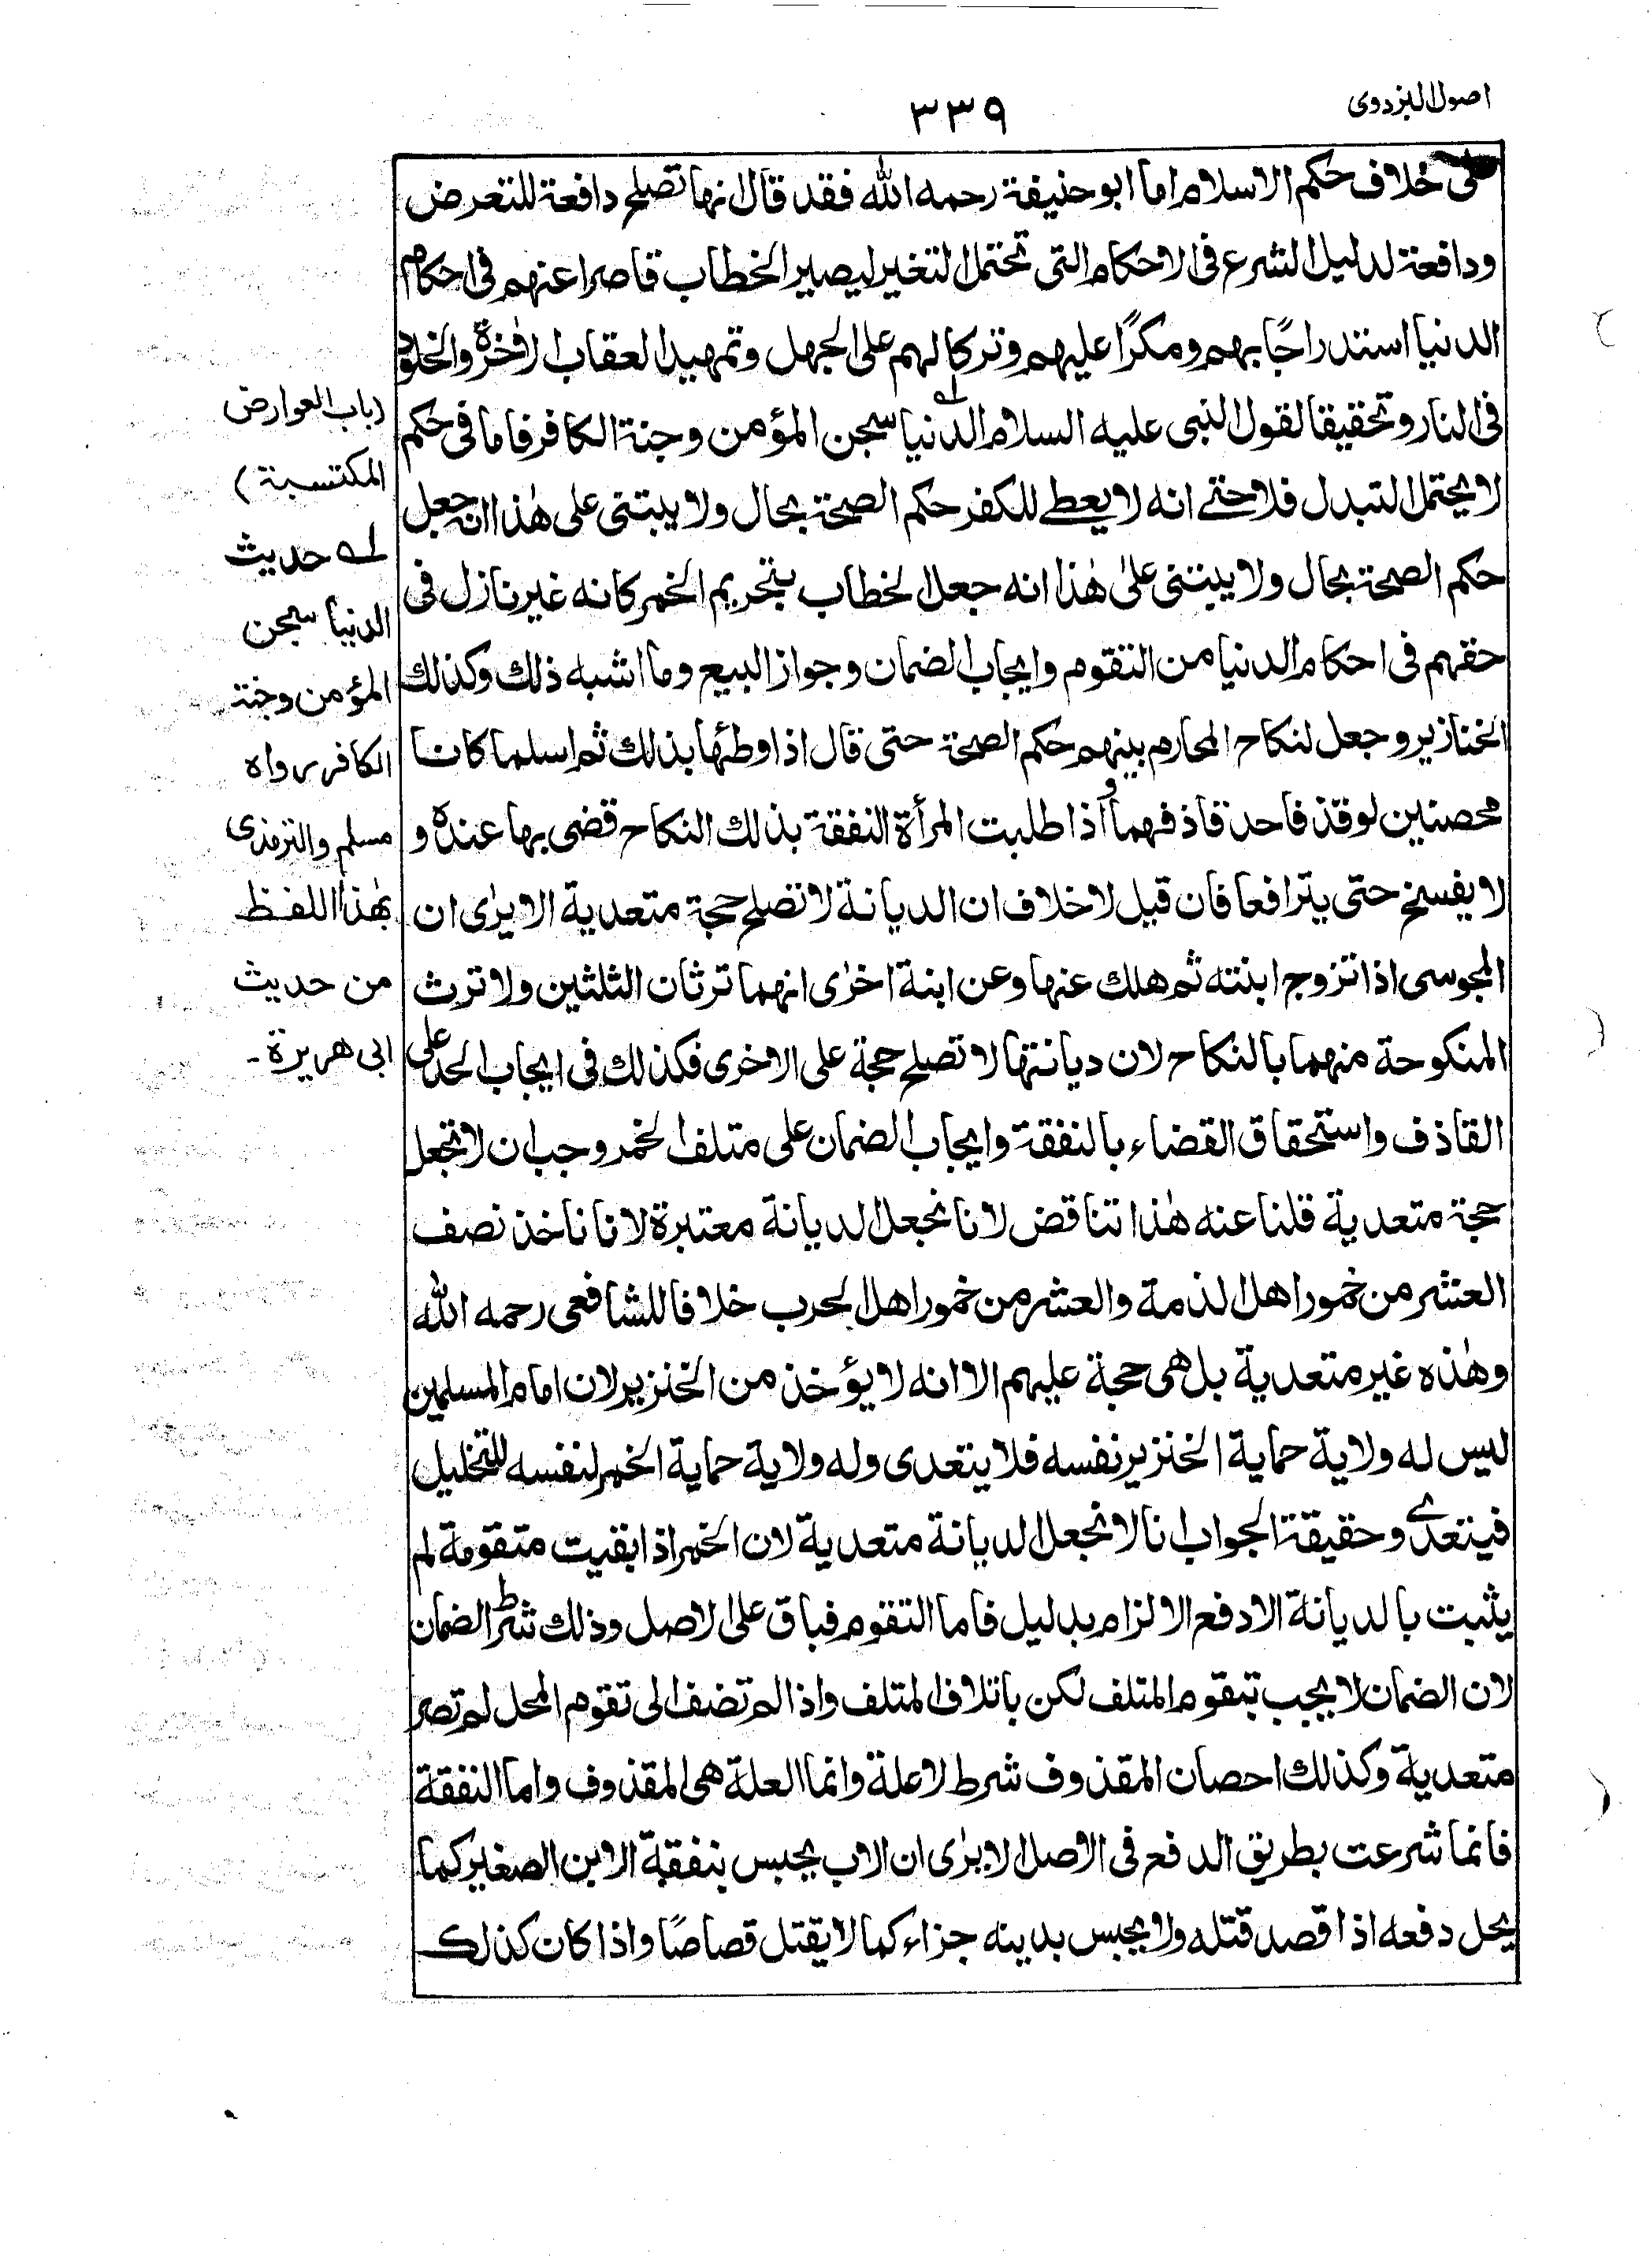 اصول البزدوی
٣٣٩
على خلاف حكم الاسلام اما ابو حنيفة رحمه الله فقد قال انها تصلح دافعة للتعرض
ودافعة لدليل الشرع فى الاحكام التى تحتمل التغير ليصير الخطاب قاصرا عنهم فى احكام
الدنيا استدراجًا بهم ومكرًا عليهم وتركا لهم على الجهل وتمهيدا لعقاب الاٰخرة والخلود
فى النار وتحقيقا لقول النبى عليه السلام الدنيا سجن المؤمن وجنة الكافر فاما فى حكم
لا يحتمل التبدل فلا حتے انه لا يعطے للكفر حكم الصحة بحال ولا يبتنى على هٰذا انه جعل
حكم الصحة بحال ولا يبتنى علىٰ هٰذا انه جعل الخطاب بتحريم الخمر كانه غير نازل فى
حقهم فى احكام الدنيا من التقوم وايجاب الضمان وجواز البيع وما اشبه ذلك وكذلك
الخنازير وجعل لنكاح المحارم بينهم حكم الصحة حتى قال اذا وطئها بذلك ثم اسلما كانا
محصنين لو قذفا حد قاذفهما و اذا طلبت المرأة النفقة بذلك النكاح قضى بها عنده و
لا يفسخ حتى يترافعا فان قيل لا خلاف ان الديانة لا تصلح حجة متعدية الا يرٰى ان
المجوسى اذا تزوج ابنته ثم هلك عنها وعن ابنة اخرٰى انهما ترثان الثلثين ولا ترث
المنكوحة منهما بالنكاح لان ديانتها لا تصلح حجة على الاخرى فكذلك فى ايجاب الحد على
القاذف واستحقاق القضاء بالنفقة وايجاب الضمان على متلف الخمر وجب ان لا تجعل
حجة متعدية قلنا عنه هٰذا تناقض لانا نجعل الديانة معتبرة لانا ناخذ نصف
العشر من خمور اهل الذمة والعشر من خمور اهل الحرب خلافا للشافعى رحمه الله
وهٰذه غير متعدية بل هى حجة عليهم الا انه لا يؤخذ من الخنزير لان امام المسلمين
ليس له ولاية حماية الخنزير نفسه فلا يتعدى وله ولاية حماية الخمر لنفسه للتخليل
فيتعدے وحقيقة الجواب انا لا نجعل الديانة متعدية لان الخمر اذا بقيت متقومة لم
يثبت بالديانة الا دفع الالزام بدليل فاما التقوم فباق على الاصل وذلك شرط الضمان
لان الضمان لا يجب بتقوم المتلف لكن باتلاف المتلف واذا لم تضف الى تقوم المحل لم تصر
متعدية وكذلك احصان المقذوف شرط لا علة وانما العلة هى المقذوف واما النفقة
فانما شرعت بطريق الدفع فى الاصل الا يرٰى ان الاب يحبس بنفقة الابن الصغير كما
يحل دفعه اذا قصد قتله ولا يحبس بدينه جزاء كما لا يقتل قصاصًا واذا كان كذلك
(باب العوارض
المكتسبة)
لـه حديث
الدنيا سجن
المؤمن وجنة
الكافر رواه
مسلم والترمذى
بهٰذا اللفظ
من حديث
ابى هريرة ـ